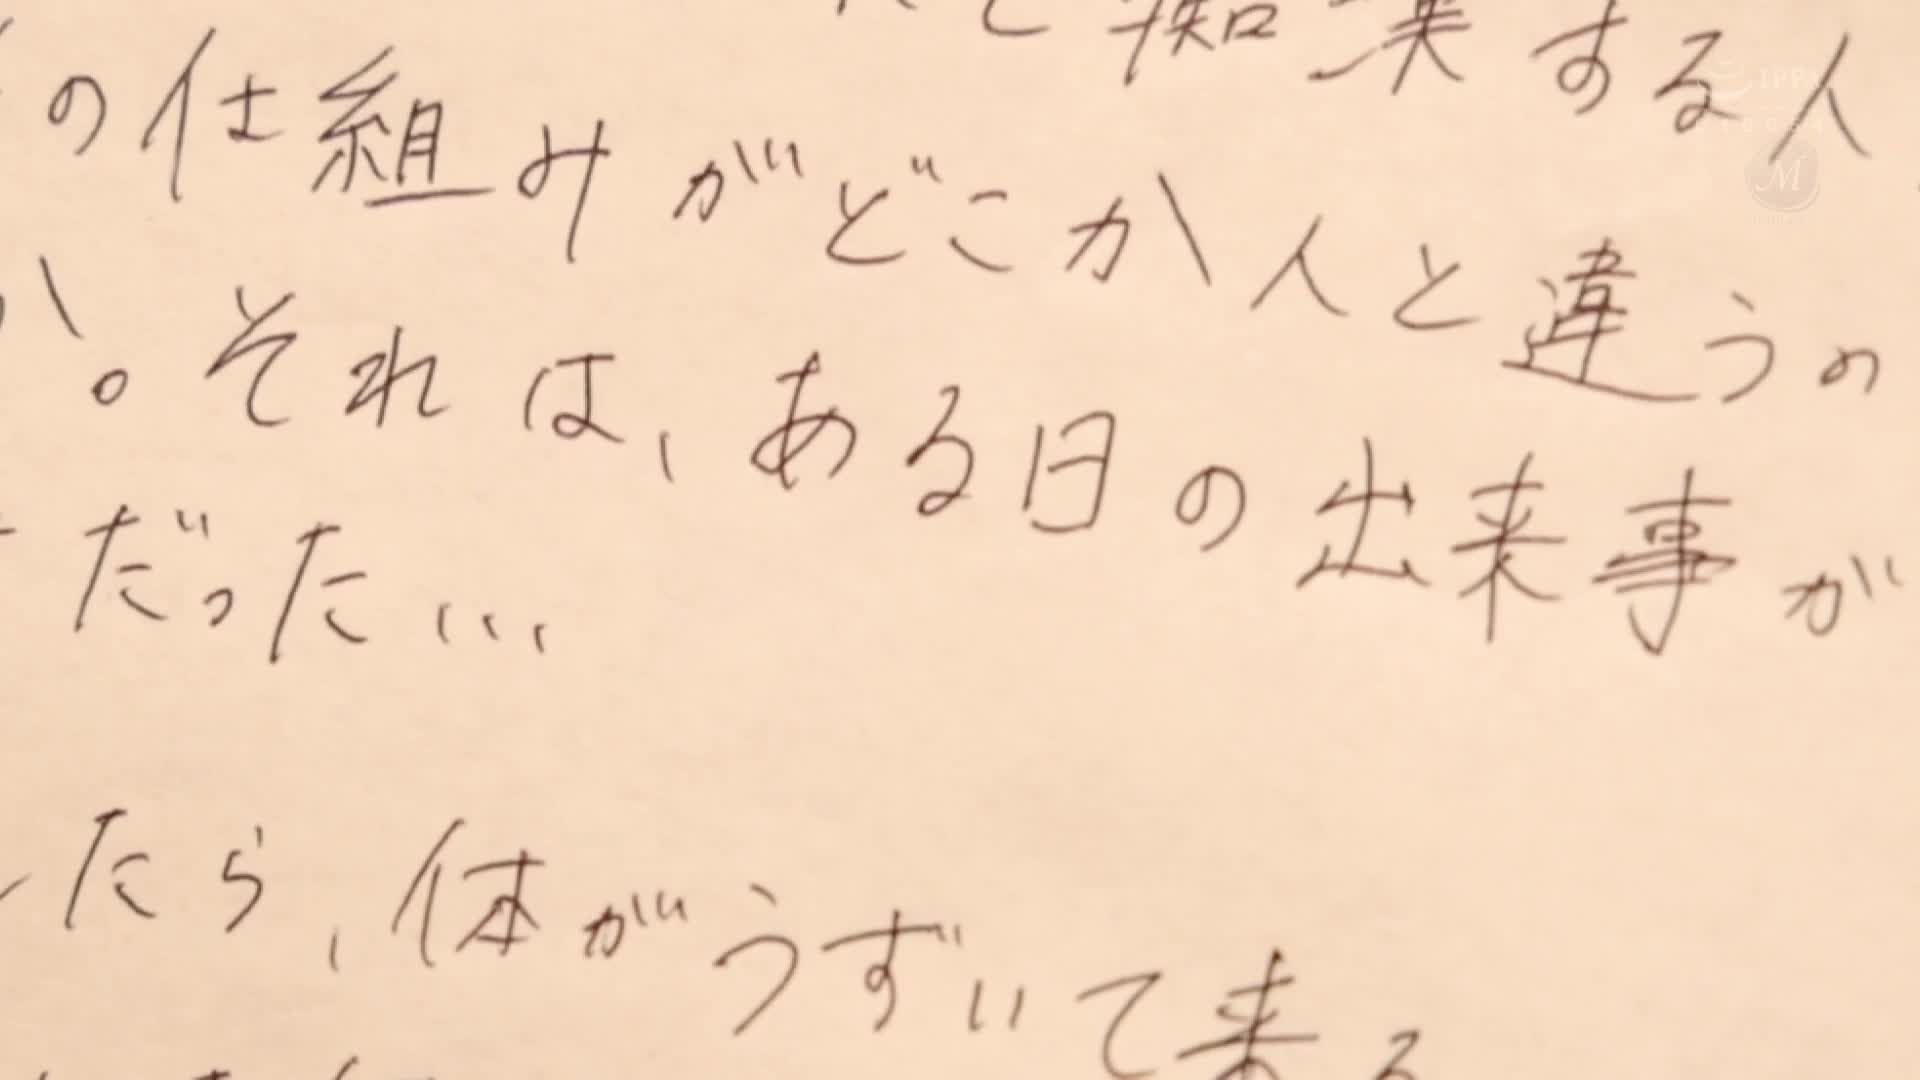 と痴漢する人
の仕組みがどこか人と違うの
か。それは、ある日の出来事が
だった...
たら、体がうずいて来る